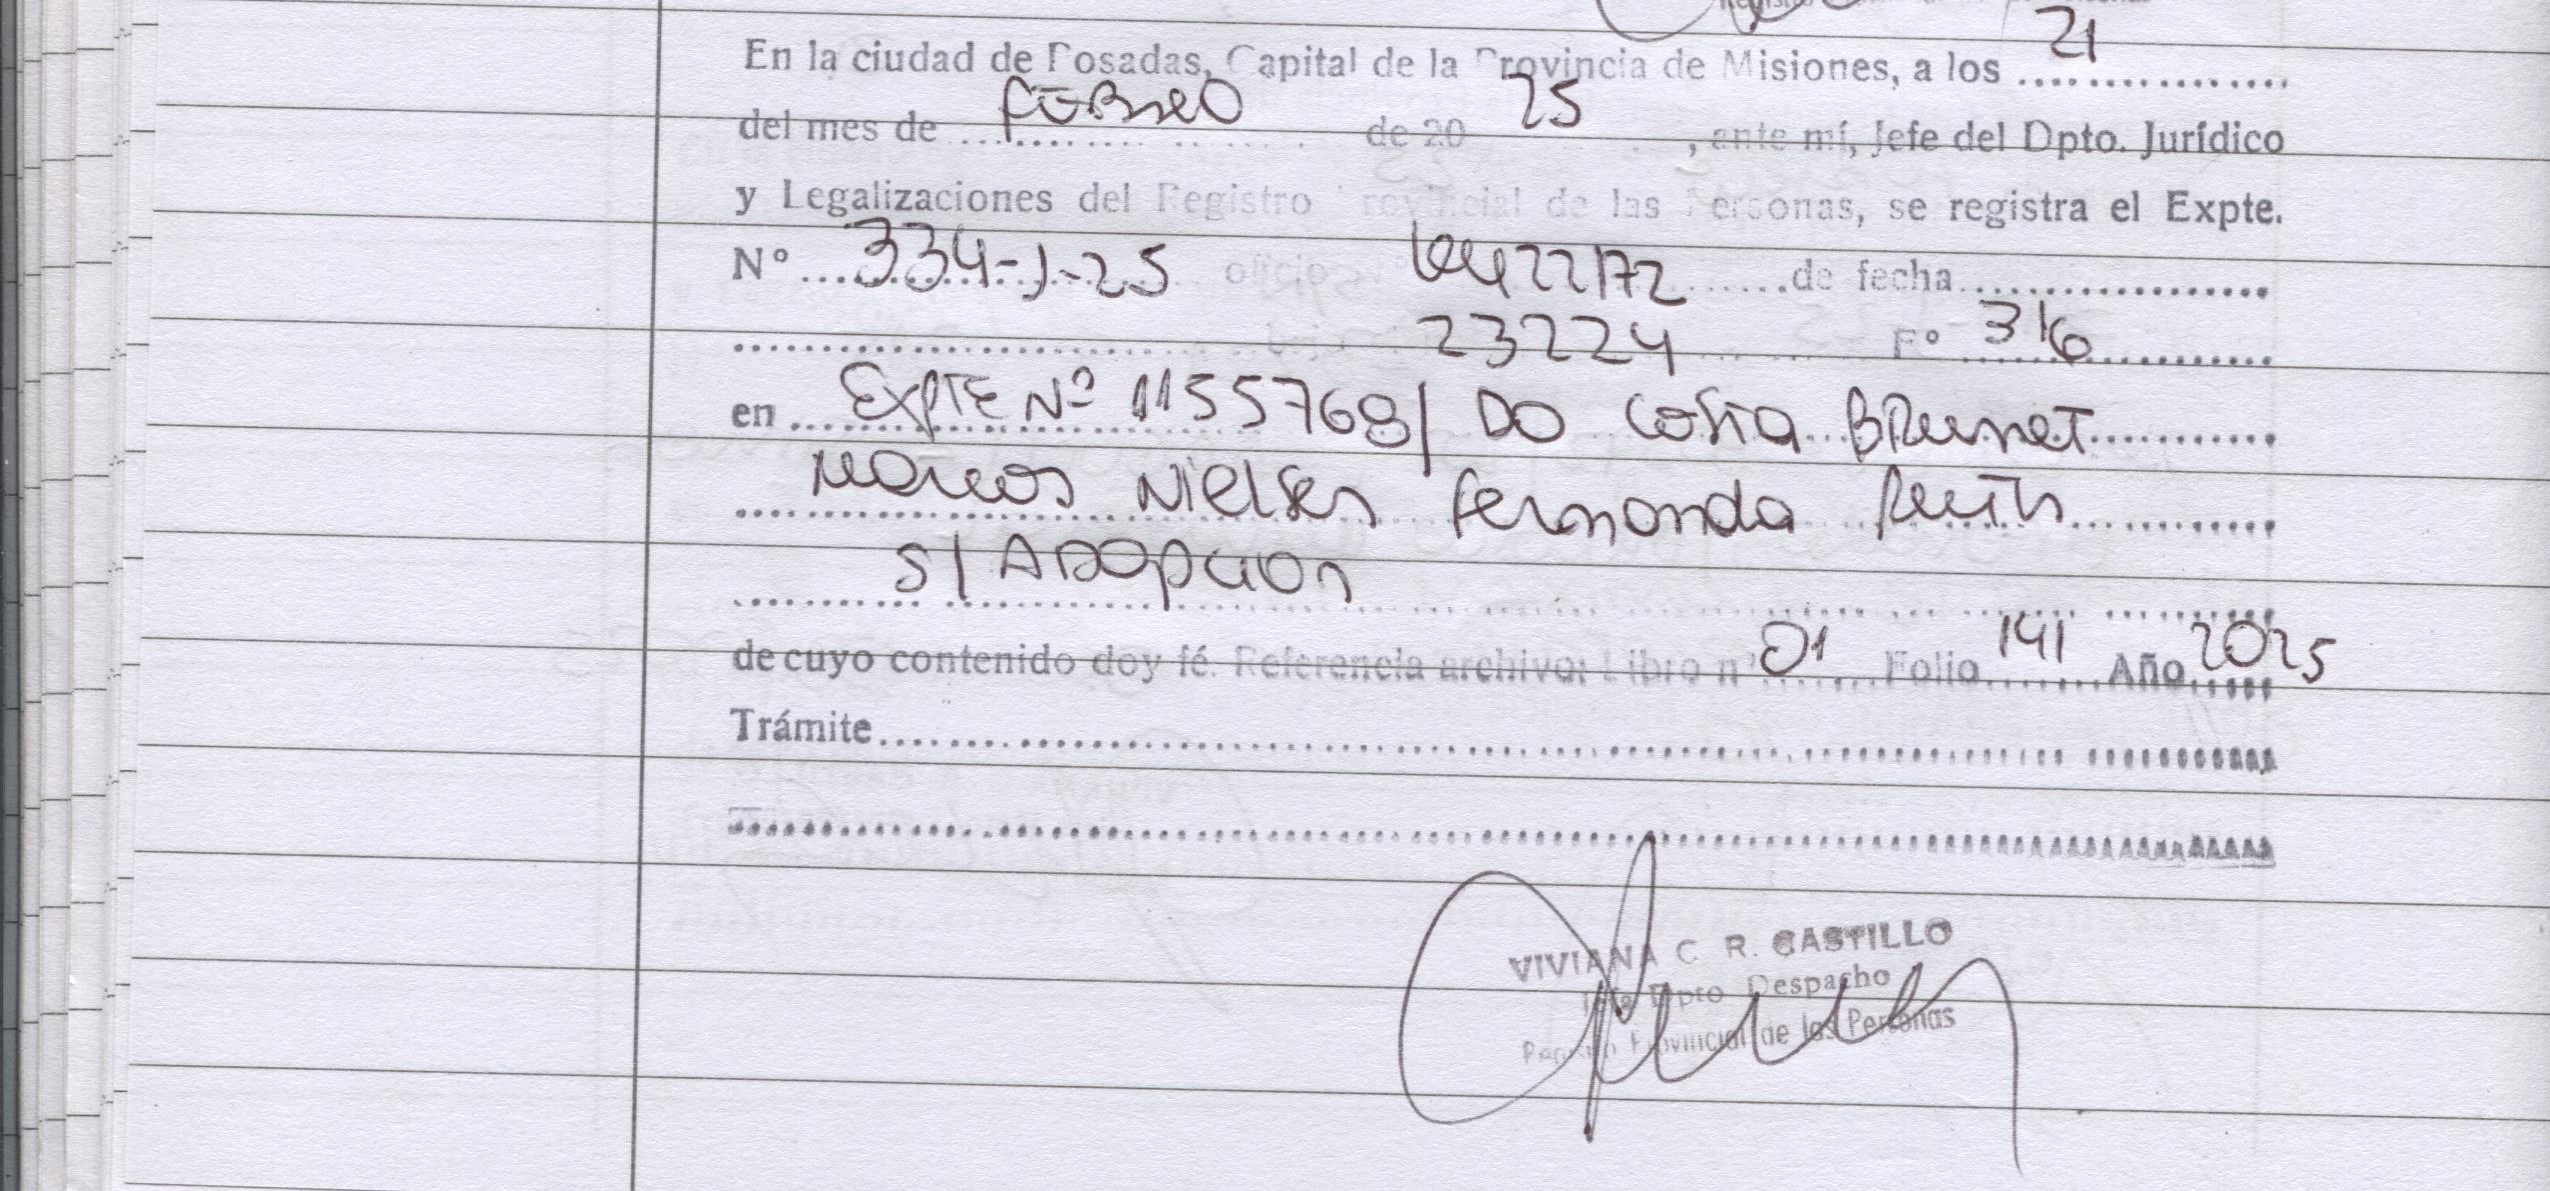 En la ciudad de Posadas, Capital de la Provincia de Misiones, a los 21
del mes de febrero de 20 25, ante mí, Jefe del Dpto. Jurídico
y Legalizaciones del Registro Provincial de las Personas, se registra el Expte.
Nº 334-J-25 oficio 4422172 de fecha
23224 Fº 316
en EXPTE Nº 1155768/ DO Costa BRunet
Marcos Nielsen Fernanda Ruth
S/ ADOPCION
de cuyo contenido doy fé. Referencia archivo: Libro nº 01 Folio 141 Año 2025
Trámite
VIVIANA C. R. CASTILLO
Jefe Dpto Despacho
Registro Provincial de las Personas